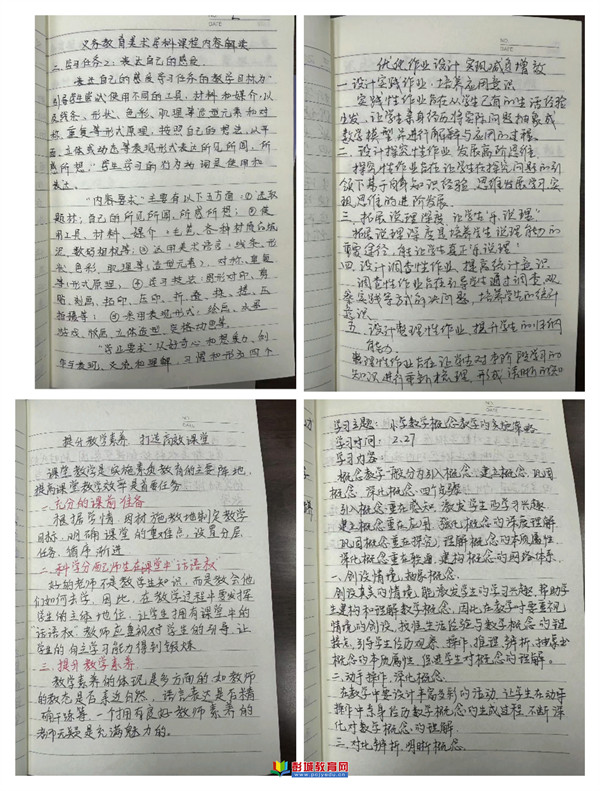 义务教育美术学科课程内容解读
二.学习任务2：表达自己的感受.
表达自己的感受学习任务的教学目标为"
引导学生尝试使用不同的工具、材料和媒介，以
及线条、形状、色彩、肌理等造型元素和对
称、重复等形式原理，按照自己的想法，以平
面、立体或动态等表现形式表达所见所闻、所
感所想，"学生学习的行为动词是使用和
表达。
"内容要求"主要有以下五方面：①选取
题材：自己的所见所闻、所感所想；②使
用工具、材料、媒介：
数码相机等；③运用美术语言：线条、形
状、色彩、肌理等（造型元素），对称、重复
等（形式原理）；④学习技法：图形对印、剪
贴、刻画、拓印、压印、折叠、
拍摄等；⑤采用表现形式：绘画、水墨
游戏、版画、立体造型、定格动画等。
"学业要求"从好奇心和想象力、创
作与表现、交流和理解、习惯和形态四个
NO.
DATE
优化作业设计 实现减负增效
一.设计实践作业，培养应用意识
实践性作业旨在从学生已有的生活经验
出发，让学生亲身经历将实际问题抽象成
数学模型并进行解释与应用的过程。
二.设计探究性作业 发展高阶思维
探究性作业旨在让学生在探究问题的引
领下基于自身知识经验、思维发展学习，实
现思维的进阶发展.
三.拓展说理深度 让学生"乐说理"
拓展说理深度是培养学生说理能力的
重要途径，能让学生真正"乐说理"
四.设计调查性作业、提高统计意识
调查性作业旨在引导学生通过调查、观
察实践等方式解决问题，培养学生的统计
意识
五.设计整理性作业、提升学生的归纳
能力.
整理性作业旨在让学生对本阶段学习的
知识进行重新梳理，形成清晰的知识
提升教学素养 打造高效课堂
课堂教学是实施素质教育的主要阵地，
提高课堂教学效率是首要任务
一.充分的课前准备
根据学情，因材施教地制定教学
目标，明确课堂的重难点，设置分层
任务，循序渐进
二.科学分配师生在课堂中"话语权"
好的老师不是教学生知识，而是教会他
们如何去学，因此，在教学过程中要发挥
学生的主体地位，让学生拥有课堂中的
"话语权"教师应重视对学生的引导，让
学生的自主学习能力得到锻炼
三.提升教学素养
教学素养的体现是多方面的，如教师
的教态是否亲切自然，语言表达是否精
确干练等，一个拥有良好教师素养的
老师无疑是充满魅力的。
学习主题：小学数学概念教学的实施策略
学习时间：2.27
学习内容
概念教学一般分为引入概念、建立概念、巩固
概念、深化概念四个步骤
引入概念重在感知，激发学生的学习兴趣
建立概念重在应用，强化概念的深度理解
巩固概念重在探究，理解概念的本质属性
深化概念重在联系，建构概念的网络体系.
一.创设情境，抽象概念.
创设真实的情境，能激发学生的学习兴趣，帮助学
生建构和理解数学概念，因此在教学中要重视
情境的创设，找准生活经验与数学概念的链
接点，引导学生经历观察、操作、推理、辨析、抽象出
概念的本质属性，促进学生对概念的理解.
二.动手操作，深化概念.
在教学中要设计丰富多彩的活动，让学生在动手
操作中亲身经历数学概念的生成过程，不断深
化对数学概念的理解.
三.对比辨析，明晰概念
彭城教育网
www.pcjyedu.cn